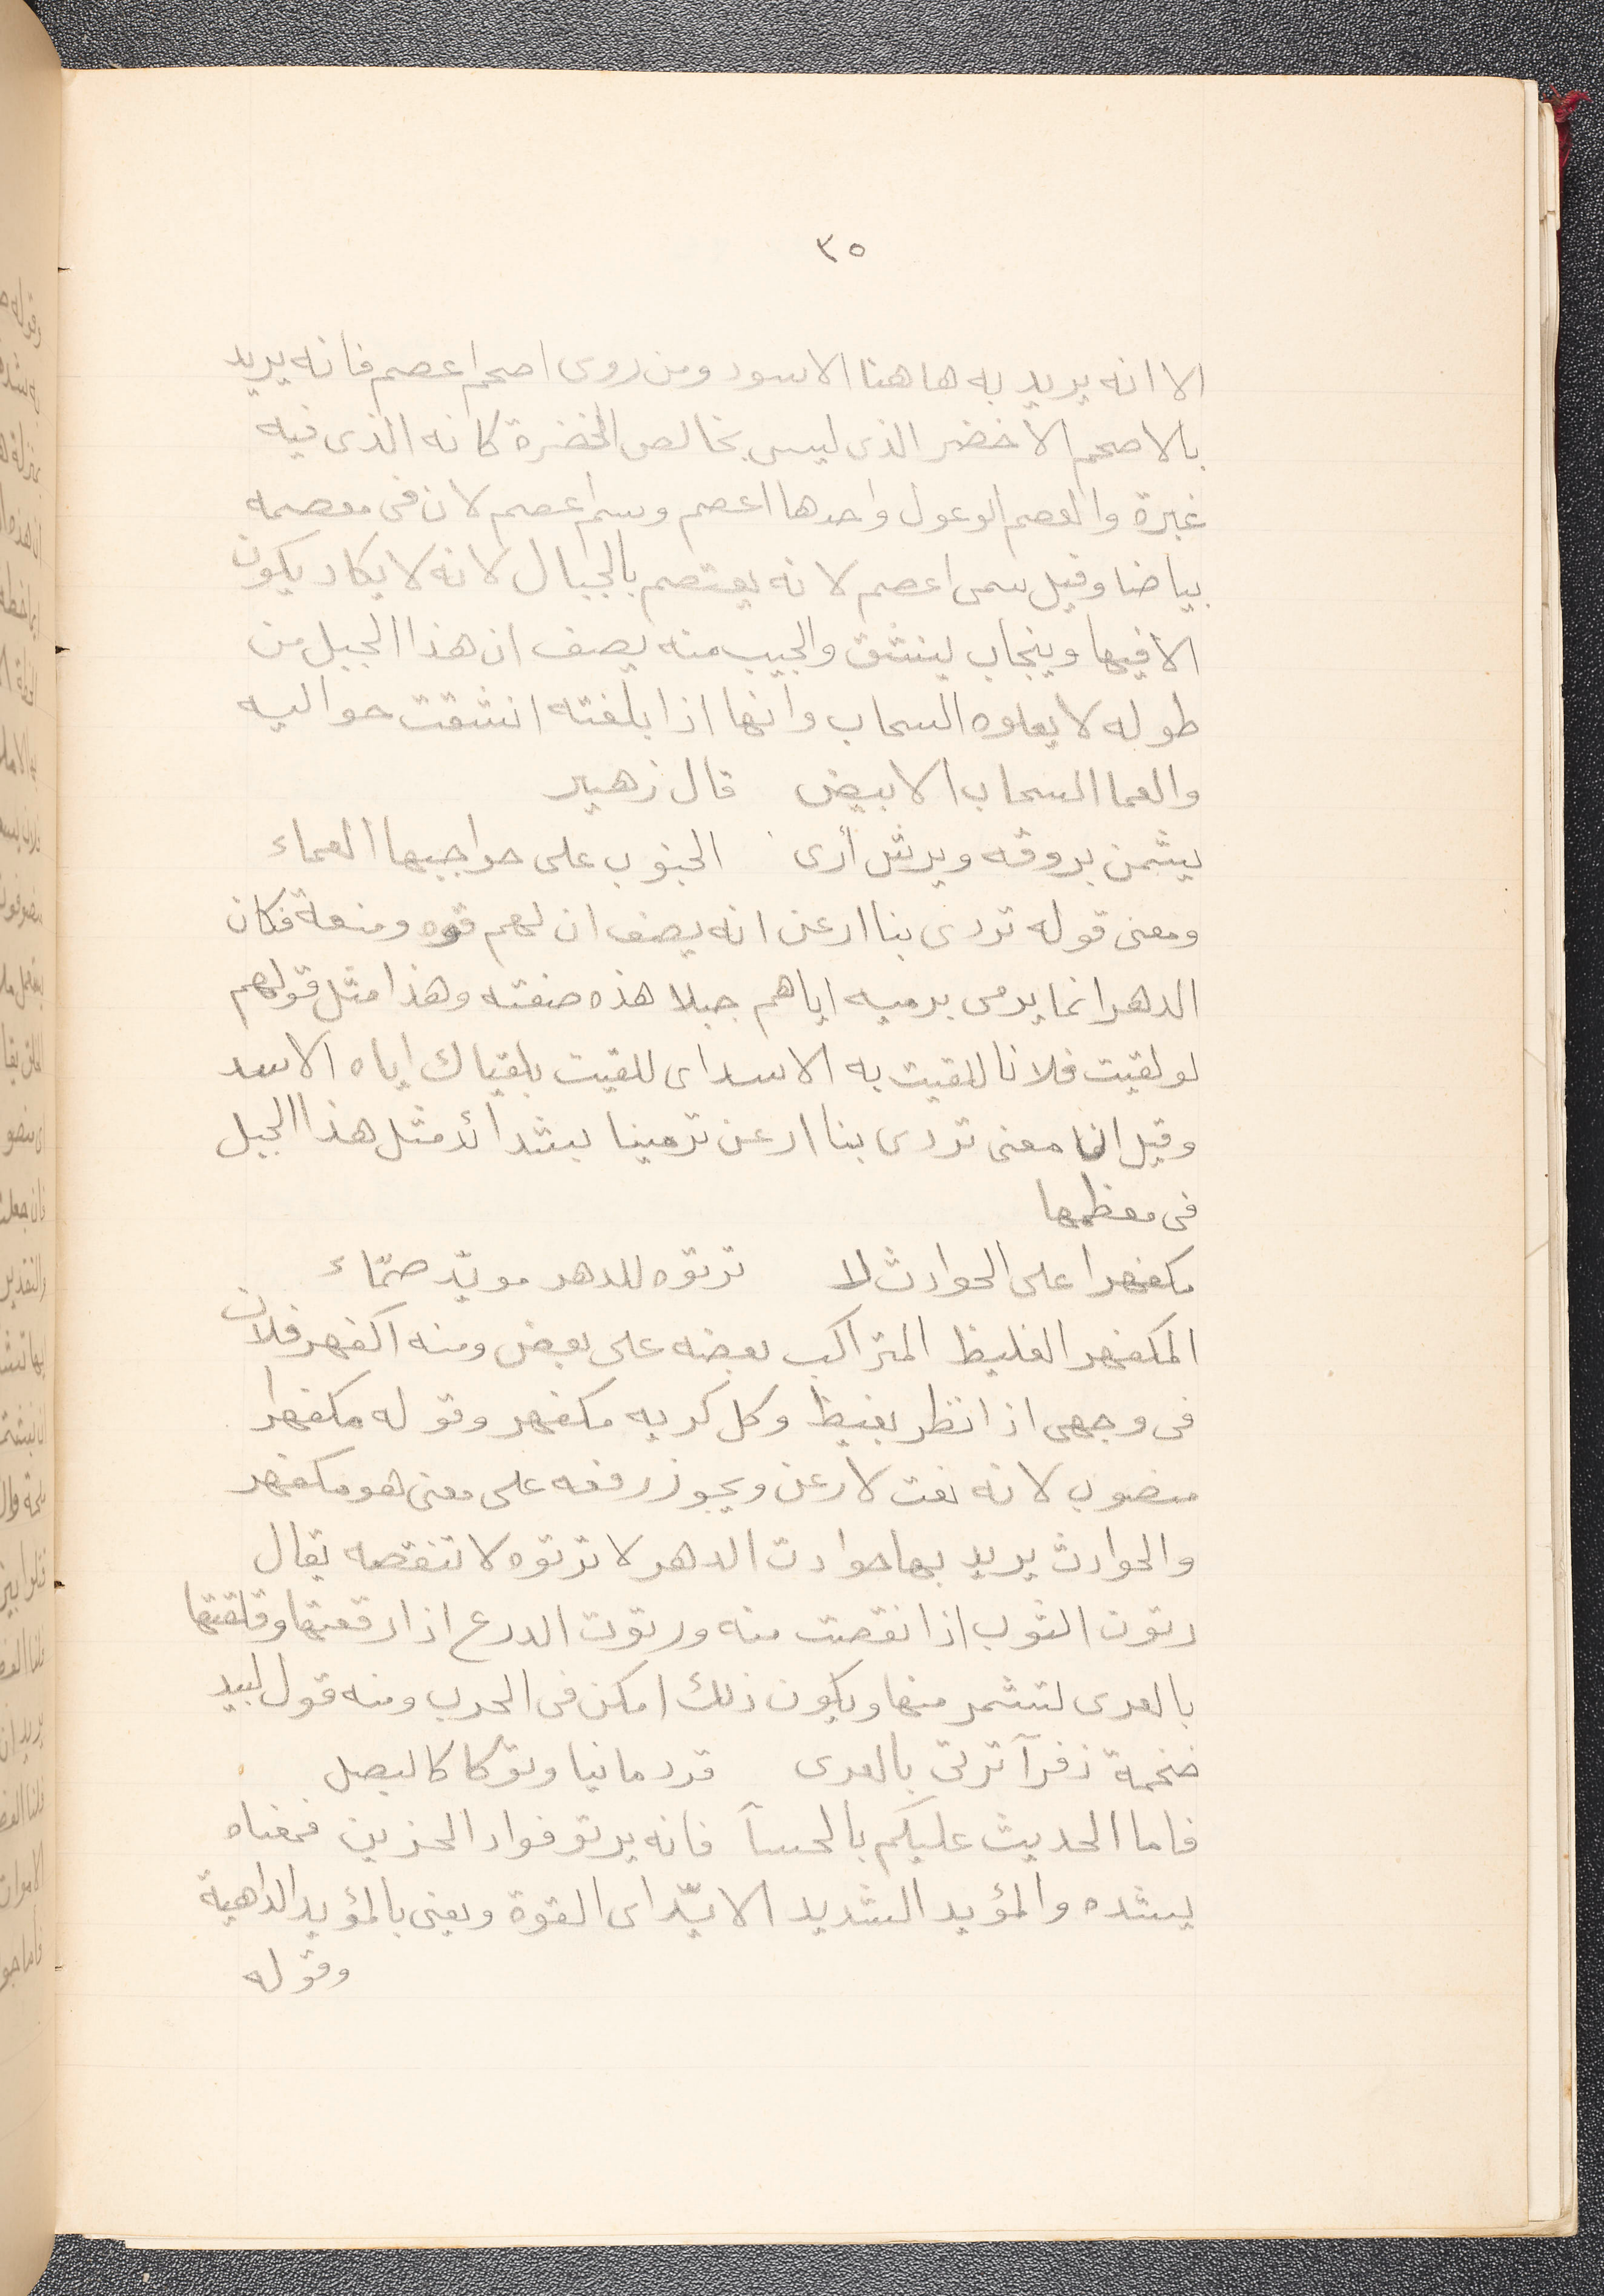 ٣٥
الا انه يريد به هاهنا الاسود ومن روى اصحم اعصم فانه يريد
بالاصحم الاخضر الذى ليس بخالص الخضرة كانه الذى فيه
غبرة والعصم الوعول واحدها اعصم وسم اعصم لان فى معصمه
بياضا وقيل سمى اعصم لانه يعتصم بالجبال لانه لا يكاد يكون
الا فيها وينجاب ينشق والجيب منه يصف ان هذا الجبل من
طوله لا يعلوه السحاب وانها اذا بلغته انشقت حواليه
والعما السحاب الابيض قال زهير
يشمن بروقه ويرش أرى الجنوب على حواجبها العماء
ومعنى قوله تردى بنا ارعن انه يصف ان لهم قوه ومنعة فكان
الدهر انما يرمى برميه اياهم جبلا هذه صفته وهذا مثل قولهم
لو لقيت فلانا للقيت به الاسد اى للقيت بلقياك اياه الاسد
وقيل انما معنى تردى بنا ارعن ترمينا بشدائد مثل هذا الجبل
فى معظمها
مكفهرا على الحوادث لا ترتوه للدهر مويّد صمّاء
المكفهر الغليظ المتراكب بعضه على بعض ومنه اكفهر فلان
فى وجهى اذا نظر بغيظ وكل كريه مكفهر وقوله مكفهرا
منصوب لانه نعت لارعن ويجوز رفعه على معنى هو مكفهر
والحوادث يريد بها حوادث الدهر لا ترتوه لا تنقصه يقال
رتوت الثوب اذا نقصت منه ورتوت الدرع اذا رفعتها وقلصتها
بالعرى لتشمر منها ويكون ذلك امكن فى الحرب ومنه قول لبيد
فخمة ذفرآ ترتى بالعرى قردمانيا وتركا كالبصل
فاما الحديث عليكم بالحسآ فانه يرتو فواد الحزين فمعناه
يشده والمؤيد الشديد الايّد اى القوة ويعنى بالمؤيد الداهية
وقوله